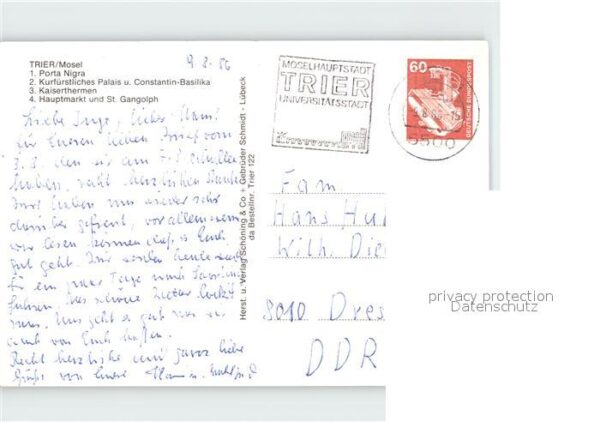 9.8.86
TRIER/Mosel
1. Porta Nigra
2. Kurfürstliches Palais u. Constantin-Basilika
3. Kaiserthermen
4. Hauptmarkt und St. Gangolph
Liebe Inge, lieber Hans!
für Eueren lieben Brief vom
3.8. den wir am 7.8. erhalten
haben, recht herzlichen Dank.
Wir haben uns wieder sehr
darüber gefreut, vor allem wenn
wir lesen können daß es Euch
gut geht. Wir wollen heute
für ein paar Tage nach
fahren. Das schöne Wetter lockt
uns. Uns geht es gut was wir
auch von Euch hoffen.
Recht herzliche und ganz liebe
Grüße von Euere
Herst. u. Verlag Schöning & Co + Gebrüder Schmidt · Lübeck
da Bestellnr. Trier 122
MOSELHAUPTSTADT
TRIER
UNIVERSITÄTSSTADT
60
DEUTSCHE BUNDESPOST
5500
Fam
Hans
Wilh.
8010 Dres
DDR
privacy protection
Datenschutz